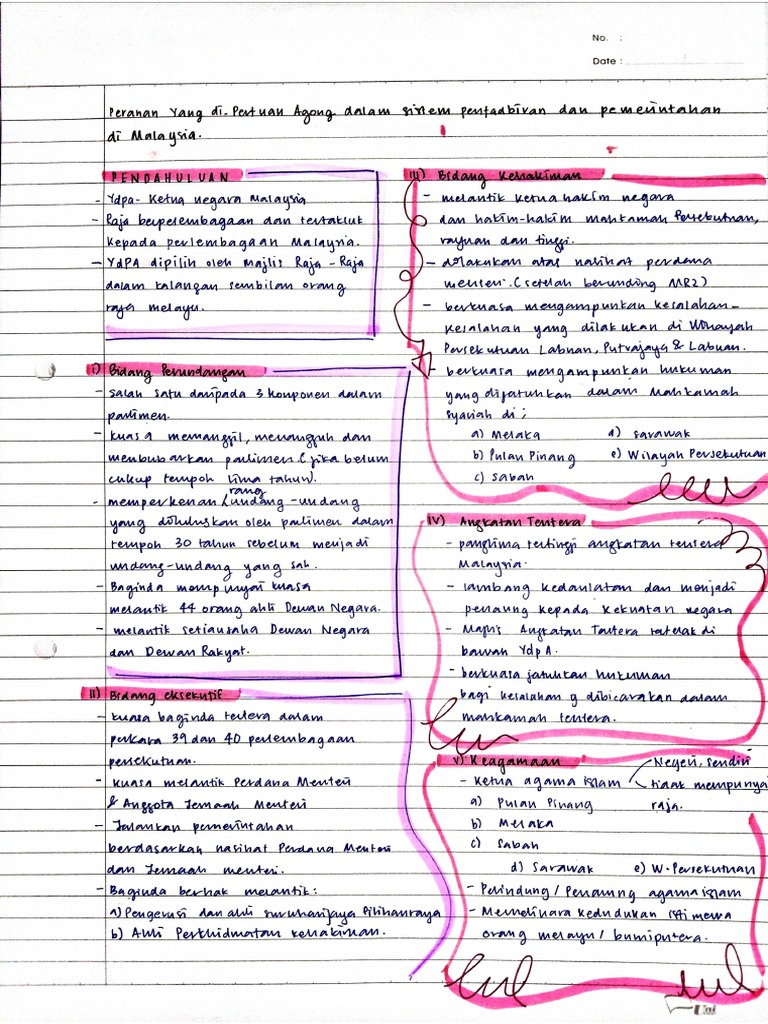 No. :
Date :
Peranan Yang di-Pertuan Agong dalam sistem pentadbiran dan pemerintahan
di Malaysia.
PENDAHULUAN
- Ydpa- Ketua negara Malaysia
- Raja berperlembagaan dan tertakluk
kepada perlembagaan Malaysia.
- YdPA dipilih oleh Majlis Raja-Raja
dalam kalangan sembilan orang
raja melayu.
i) Bidang Perundangan
- salah satu daripada 3 komponen dalam
parlimen.
- kuasa memanggil, menangguh dan
membubarkan parlimen (jika belum
cukup tempoh lima tahun).
- memperkenan undang-undang
rang
yang diluluskan oleh parlimen dalam
tempoh 30 tahun sebelum menjadi
undang-undang yang sah.
- Baginda mempunyai kuasa
melantik 44 orang ahli Dewan Negara.
- melantik setiausaha Dewan Negara
dan Dewan Rakyat.
ii) Bidang eksekutif
- kuasa baginda tertera dalam
perkara 39 dan 40 perlembagaan
persekutuan.
- kuasa melantik Perdana Menteri
& Anggota Jemaah Menteri
- Jalankan pemerintahan
berdasarkan nasihat Perdana Menteri
dan Jemaah menteri.
- Baginda berhak melantik:
a) Pengerusi dan ahli suruhanjaya Pilihanraya
b) Ahli Perkhidmatan kehakiman.
iii) Bidang Kehakiman
- melantik ketua hakim negara
- dan hakim-hakim mahkamah Persekutuan,
rayuan dan tinggi.
- dilakukan atas nasihat perdana
menteri. (setelah berunding MR2)
- berkuasa mengampunkan kesalahan-
kesalahan yang dilakukan di Wilayah
Persekutuan Labuan, Putrajaya & Labuan.
- berkuasa mengampunkan hukuman
yang dijatuhkan dalam Mahkamah
syariah di ;
a) Melaka d) Sarawak
b) Pulau Pinang e) Wilayah Persekutuan
c) Sabah
iv) Angkatan Tentera
- panglima tertinggi angkatan tentera
Malaysia.
- lambang kedaulatan dan menjadi
penaung kepada kekuatan negara
- Majlis Angkatan Tentera terletak di
bawah YdpA.
- berkuasa jatuhkan hukuman
bagi kesalahan yg dibicarakan dalam
mahkamah tentera.
v) Keagamaan
- Ketua agama islam
Negeri sendiri
tidak mempunyai
raja.
a) Pulau Pinang
b) Melaka
c) Sabah
d) Sarawak e) W.Persekutuan
- Pelindung / Penaung agama islam
- Memelihara kedudukan istimewa
orang melayu / bumiputera.
Uni